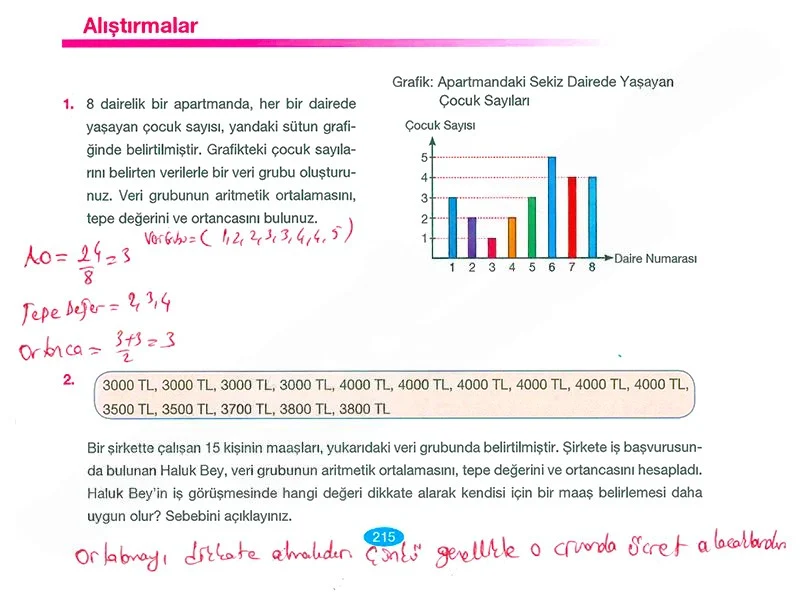 Alıştırmalar
1. 8 dairelik bir apartmanda, her bir dairede
yaşayan çocuk sayısı, yandaki sütun grafi-
ğinde belirtilmiştir. Grafikteki çocuk sayıla-
rını belirten verilerle bir veri grubu oluşturu-
nuz. Veri grubunun aritmetik ortalamasını,
tepe değerini ve ortancasını bulunuz.
Grafik: Apartmandaki Sekiz Dairede Yaşayan
Çocuk Sayıları
Çocuk Sayısı
5
4
3
2
1
1 2 3 4 5 6 7 8 Daire Numarası
= ( 1, 2, 2, 3, 3, 4, 4, 5 )
AO = 24/8 = 3
Tepe Değer = 2, 3, 4
Ortanca = 3+3/2 = 3
2. 3000 TL, 3000 TL, 3000 TL, 3000 TL, 4000 TL, 4000 TL, 4000 TL, 4000 TL, 4000 TL, 4000 TL,
3500 TL, 3500 TL, 3700 TL, 3800 TL, 3800 TL
Bir şirkette çalışan 15 kişinin maaşları, yukarıdaki veri grubunda belirtilmiştir. Şirkete iş başvurusun-
da bulunan Haluk Bey, veri grubunun aritmetik ortalamasını, tepe değerini ve ortancasını hesapladı.
Haluk Bey'in iş görüşmesinde hangi değeri dikkate alarak kendisi için bir maaş belirlemesi daha
uygun olur? Sebebini açıklayınız.
215
Ortalamayı dikkate almalıdır. Çünkü genellikle o civarda ücret alacaklardır